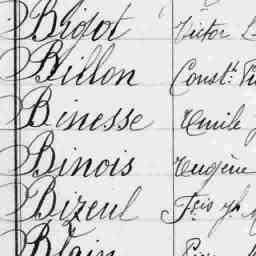 Bigot Victor
Billon Const.t
Binesse Emile
Binois Eugène
Bizeul F.çois
Blain